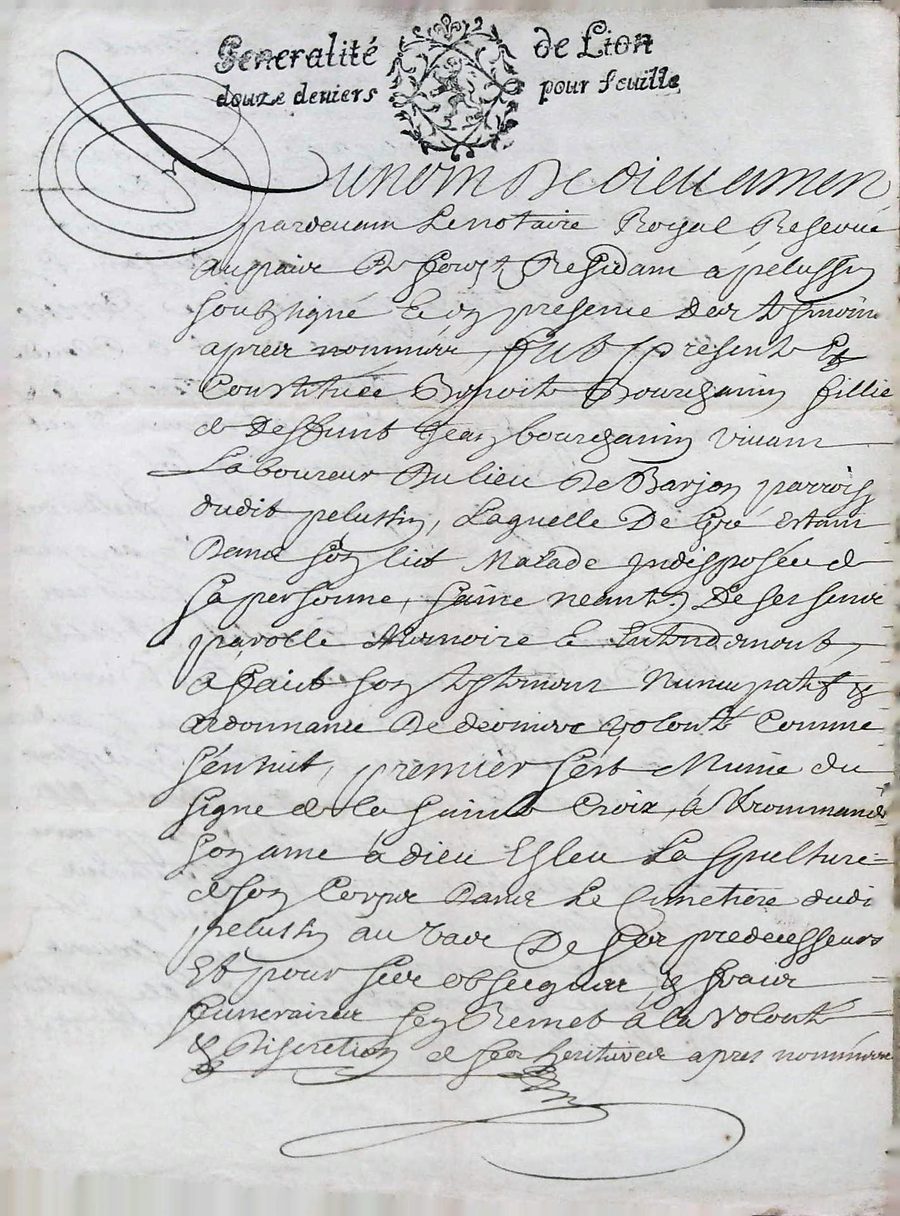 Generalité de Lion
douze deniers pour feuille
Au nom De dieu amen
pardevant Le notaire Royal Reservé
Au païs De forest Residant a pelussin
soubsigné Et en presence des tesmoins
apres nommés, fut presente Et
Constituée Benoite Bourganin fillie
de Deffunt Jean bourganin vivant
Laboureur Du lieu De Barjon parroisse
dudit pelussin, Laquelle De Gré estant
Dans son lict Malade Indisposée de
sa personne, saine neant.s De ses sens
parolle Memoire Et Entendement,
a faict son testament Nuncupatif &
ordonnance De derniere volonté Comme
s'ensuit, premier s'est Munie du
signe de la sainte Croix, & Recommandé
son ame a dieu Esleu La sepulture
de son Corps Dans Le Cimetiere dudi
pelussin au vas De ses predecesseurs
Et pour ses obseques & frais
funeraires s'en Remet a la volonté
& Discretion de ses heritiers apres nommés